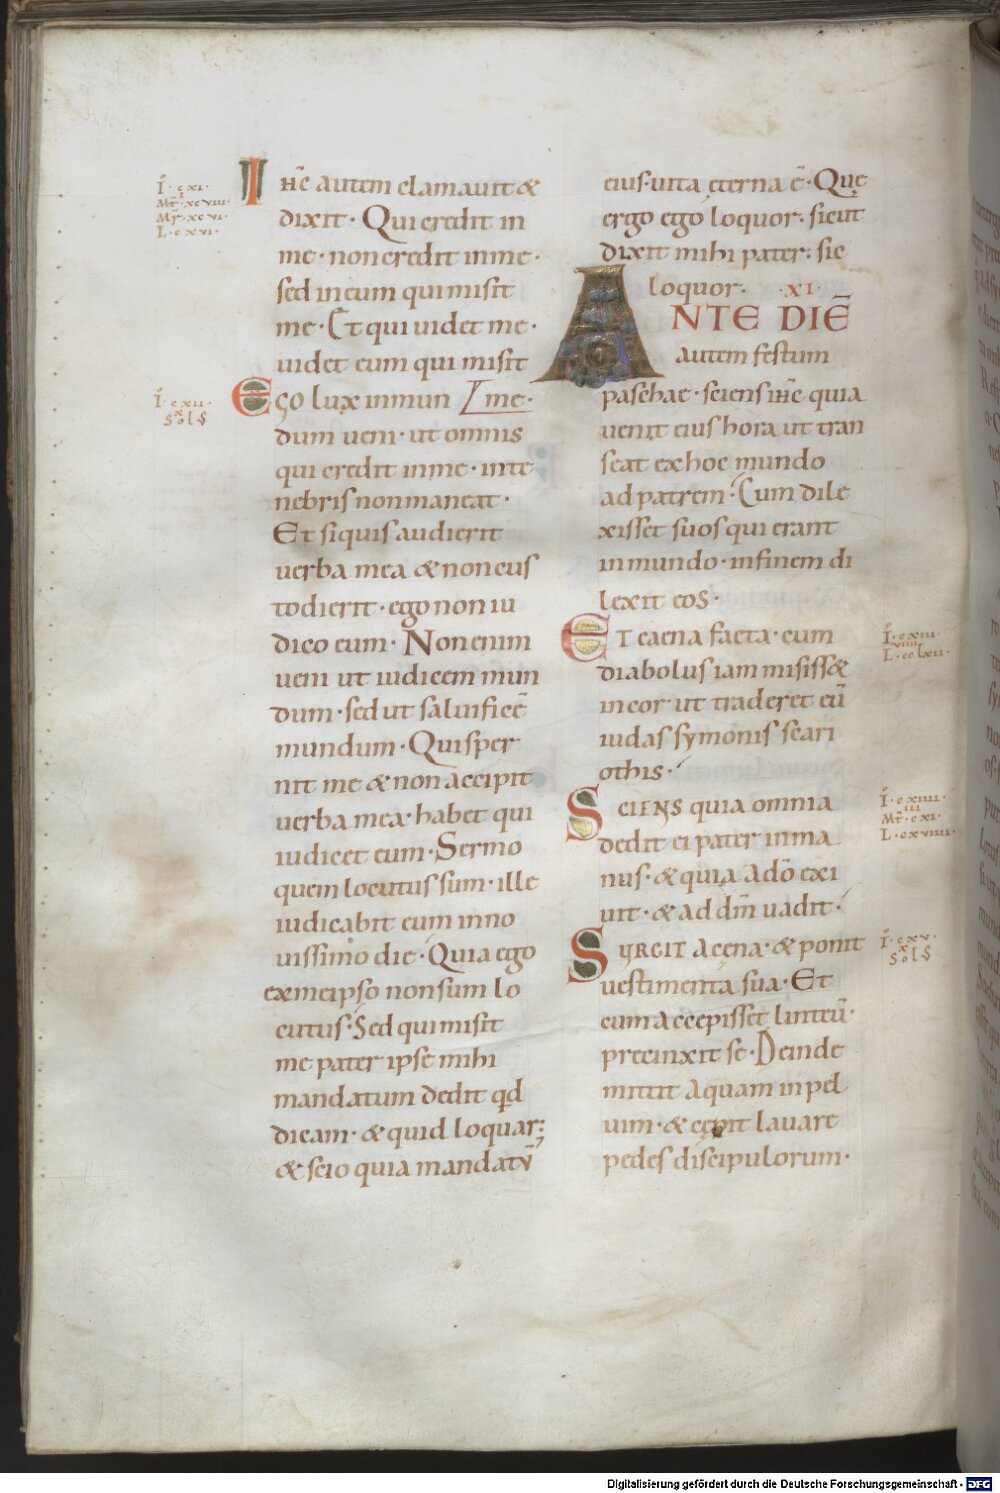 I · cxi ·
i
Mt̄ · xcviii ·
Mr̄ · xcvi ·
L · cxvi ·
IHC̄ autem clamauit &
dixit · Qui credit in
me · non credit in me ·
sed in eum qui misit
me · Et qui uidet me ·
uidet eum qui misit
me ·
I · cxii ·
x
Solꝰ
Ego lux in mun
dum ueni · ut omnis
qui credit in me · in te
nebris non maneat ·
Et siquis audierit
uerba mea & non cus
todierit · ego non iu
dico eum · Non enim
ueni ut iudicem mun
dum · sed ut saluificē
mundum · Qui sper
nit me & non accipit
uerba mea · habet qui
iudicet eum · Sermo
quem locutus sum · ille
iudicabit eum in no
uissimo die · Quia ego
ex meipso non sum lo
cutus · Sed qui misit
me pater ipse mihi
mandatum dedit qd
dicam · & quid loquar;
& scio quia mandatū
eius · uita ęterna ē · Quę
ergo ego loquor · sicut
dixit mihi pater · sic
loquor · · XI ·
ANTE DIĒ
autem festum
paschae · sciens IHC̄ quia
uenit eius hora ut tran
seat ex hoc mundo
ad patrem · Cum dile
xisset suos qui erant
in mundo · in finem di
lexit eos ·
ET caena facta · cum
diabolus iam misiss&
in cor ut traderet eū
iudas symonis scari
othis ·
I · cxiii ·
viiii
L · cclxii ·
SCIENS quia omnia
dedit ei pater in ma
nus · & quia a dō exi
uit · & ad dm̄ uadit ·
I · cxiiii ·
iii
Mt̄ · cxi ·
L · cxviiii ·
SURGIT a cena · & ponit
uestimenta sua · Et
cum accepisset linteū ·
precinxit se · Deinde
mittit aquam in pel
uim · & cępit lauare
pedes discipulorum ·
I · cxv ·
x
Solꝰ
Digitalisierung gefördert durch die Deutsche Forschungsgemeinschaft - DFG